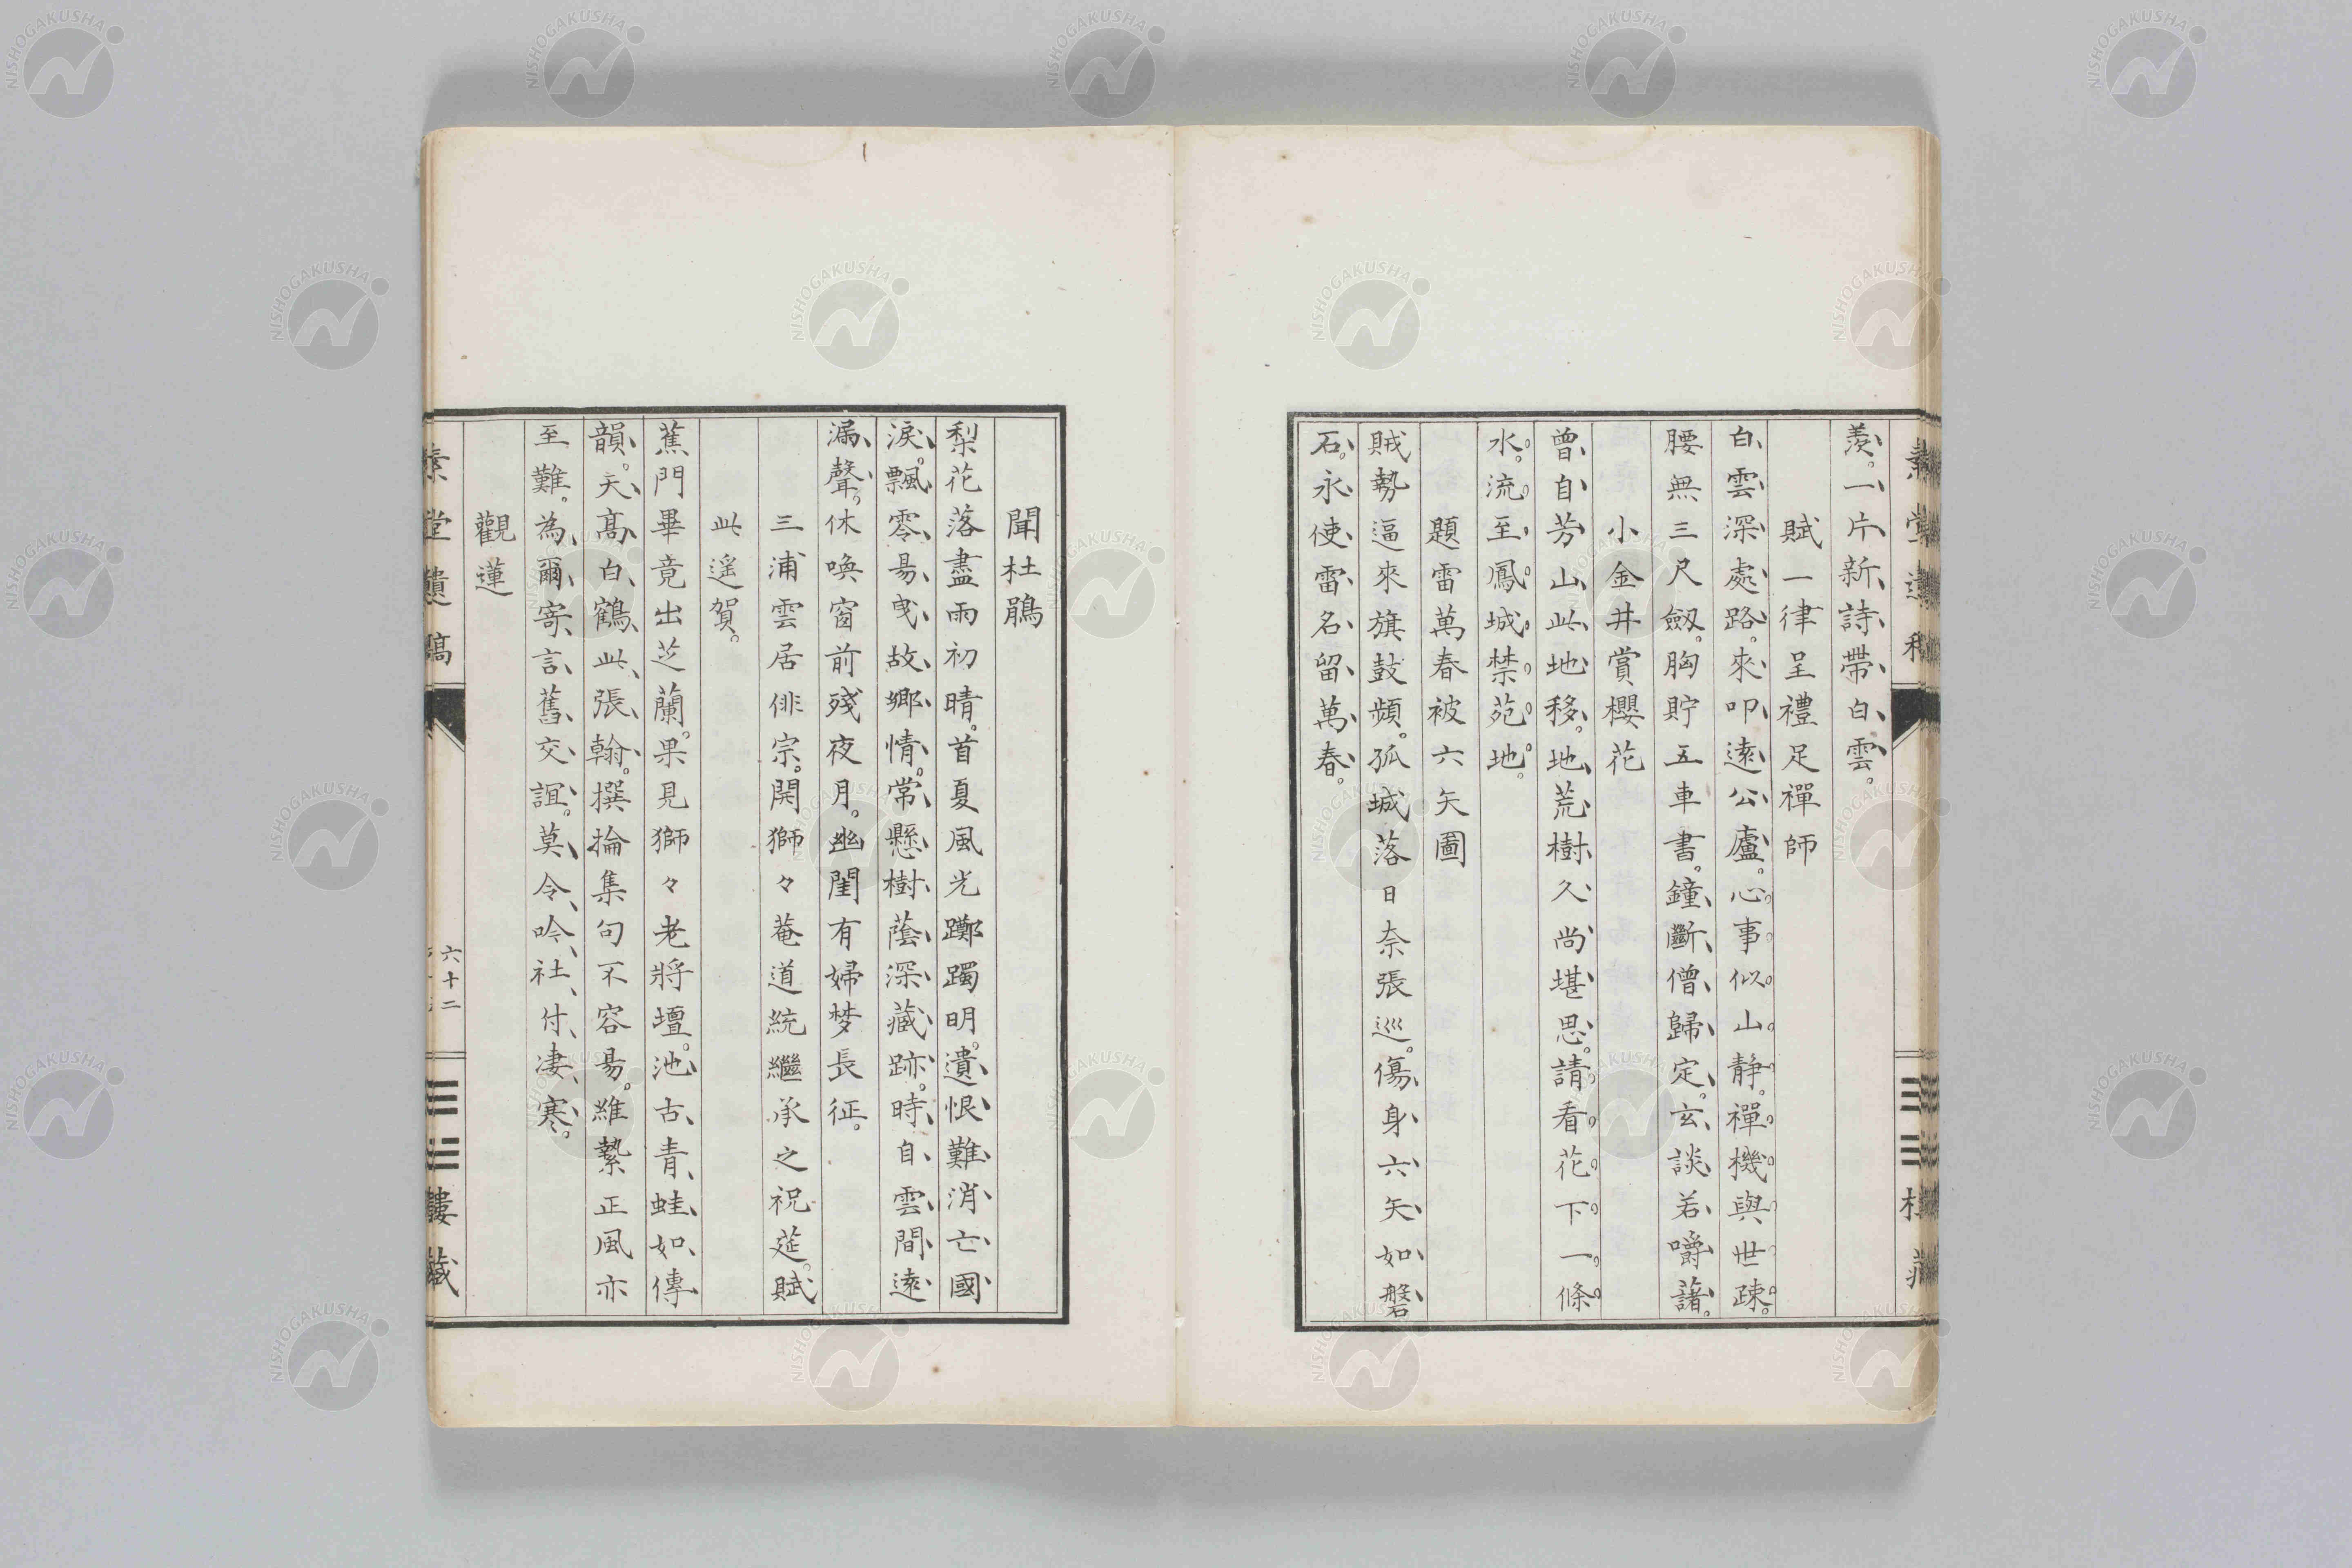 羨。一片新詩帶白雲。
賦一律呈禮足禪師
白雲深處路。來叩遠公廬。心事似山靜。禪機與世疎。
腰無三尺劔。胸貯五車書。鐘斷僧歸定。玄談若嚼藷。
小金井賞櫻花
曾自芳山此地移。地荒樹久尚堪思。請看花下一條
水。流至鳳城禁苑地。
題雷萬春被六矢圖
賊勢逼來旗鼓頻。孤城落日奈張巡。傷身六矢如磐
石。永使雷名留萬春。
聞杜鵑
梨花落盡雨初晴。首夏風光躑躅明。遺恨難消亡國
淚。飄零易曳故鄉情。常懸樹蔭深藏跡。時自雲間遠
漏聲。休喚窗前殘夜月。幽閨有婦梦長征。
三浦雲居俳宗。開獅々菴道統繼承之祝莚。賦
此遙賀。
蕉門畢竟出芝蘭。果見獅々老將壇。池古青蛙如傳
韻。天高白鶴此張翰。撰掄集句不容易。維縶正風亦
至難。為爾寄言舊交誼。莫令吟社付凄寒。
觀蓮
素堂遺稿
六十二
三三樓藏
NISHOGAKUSHA